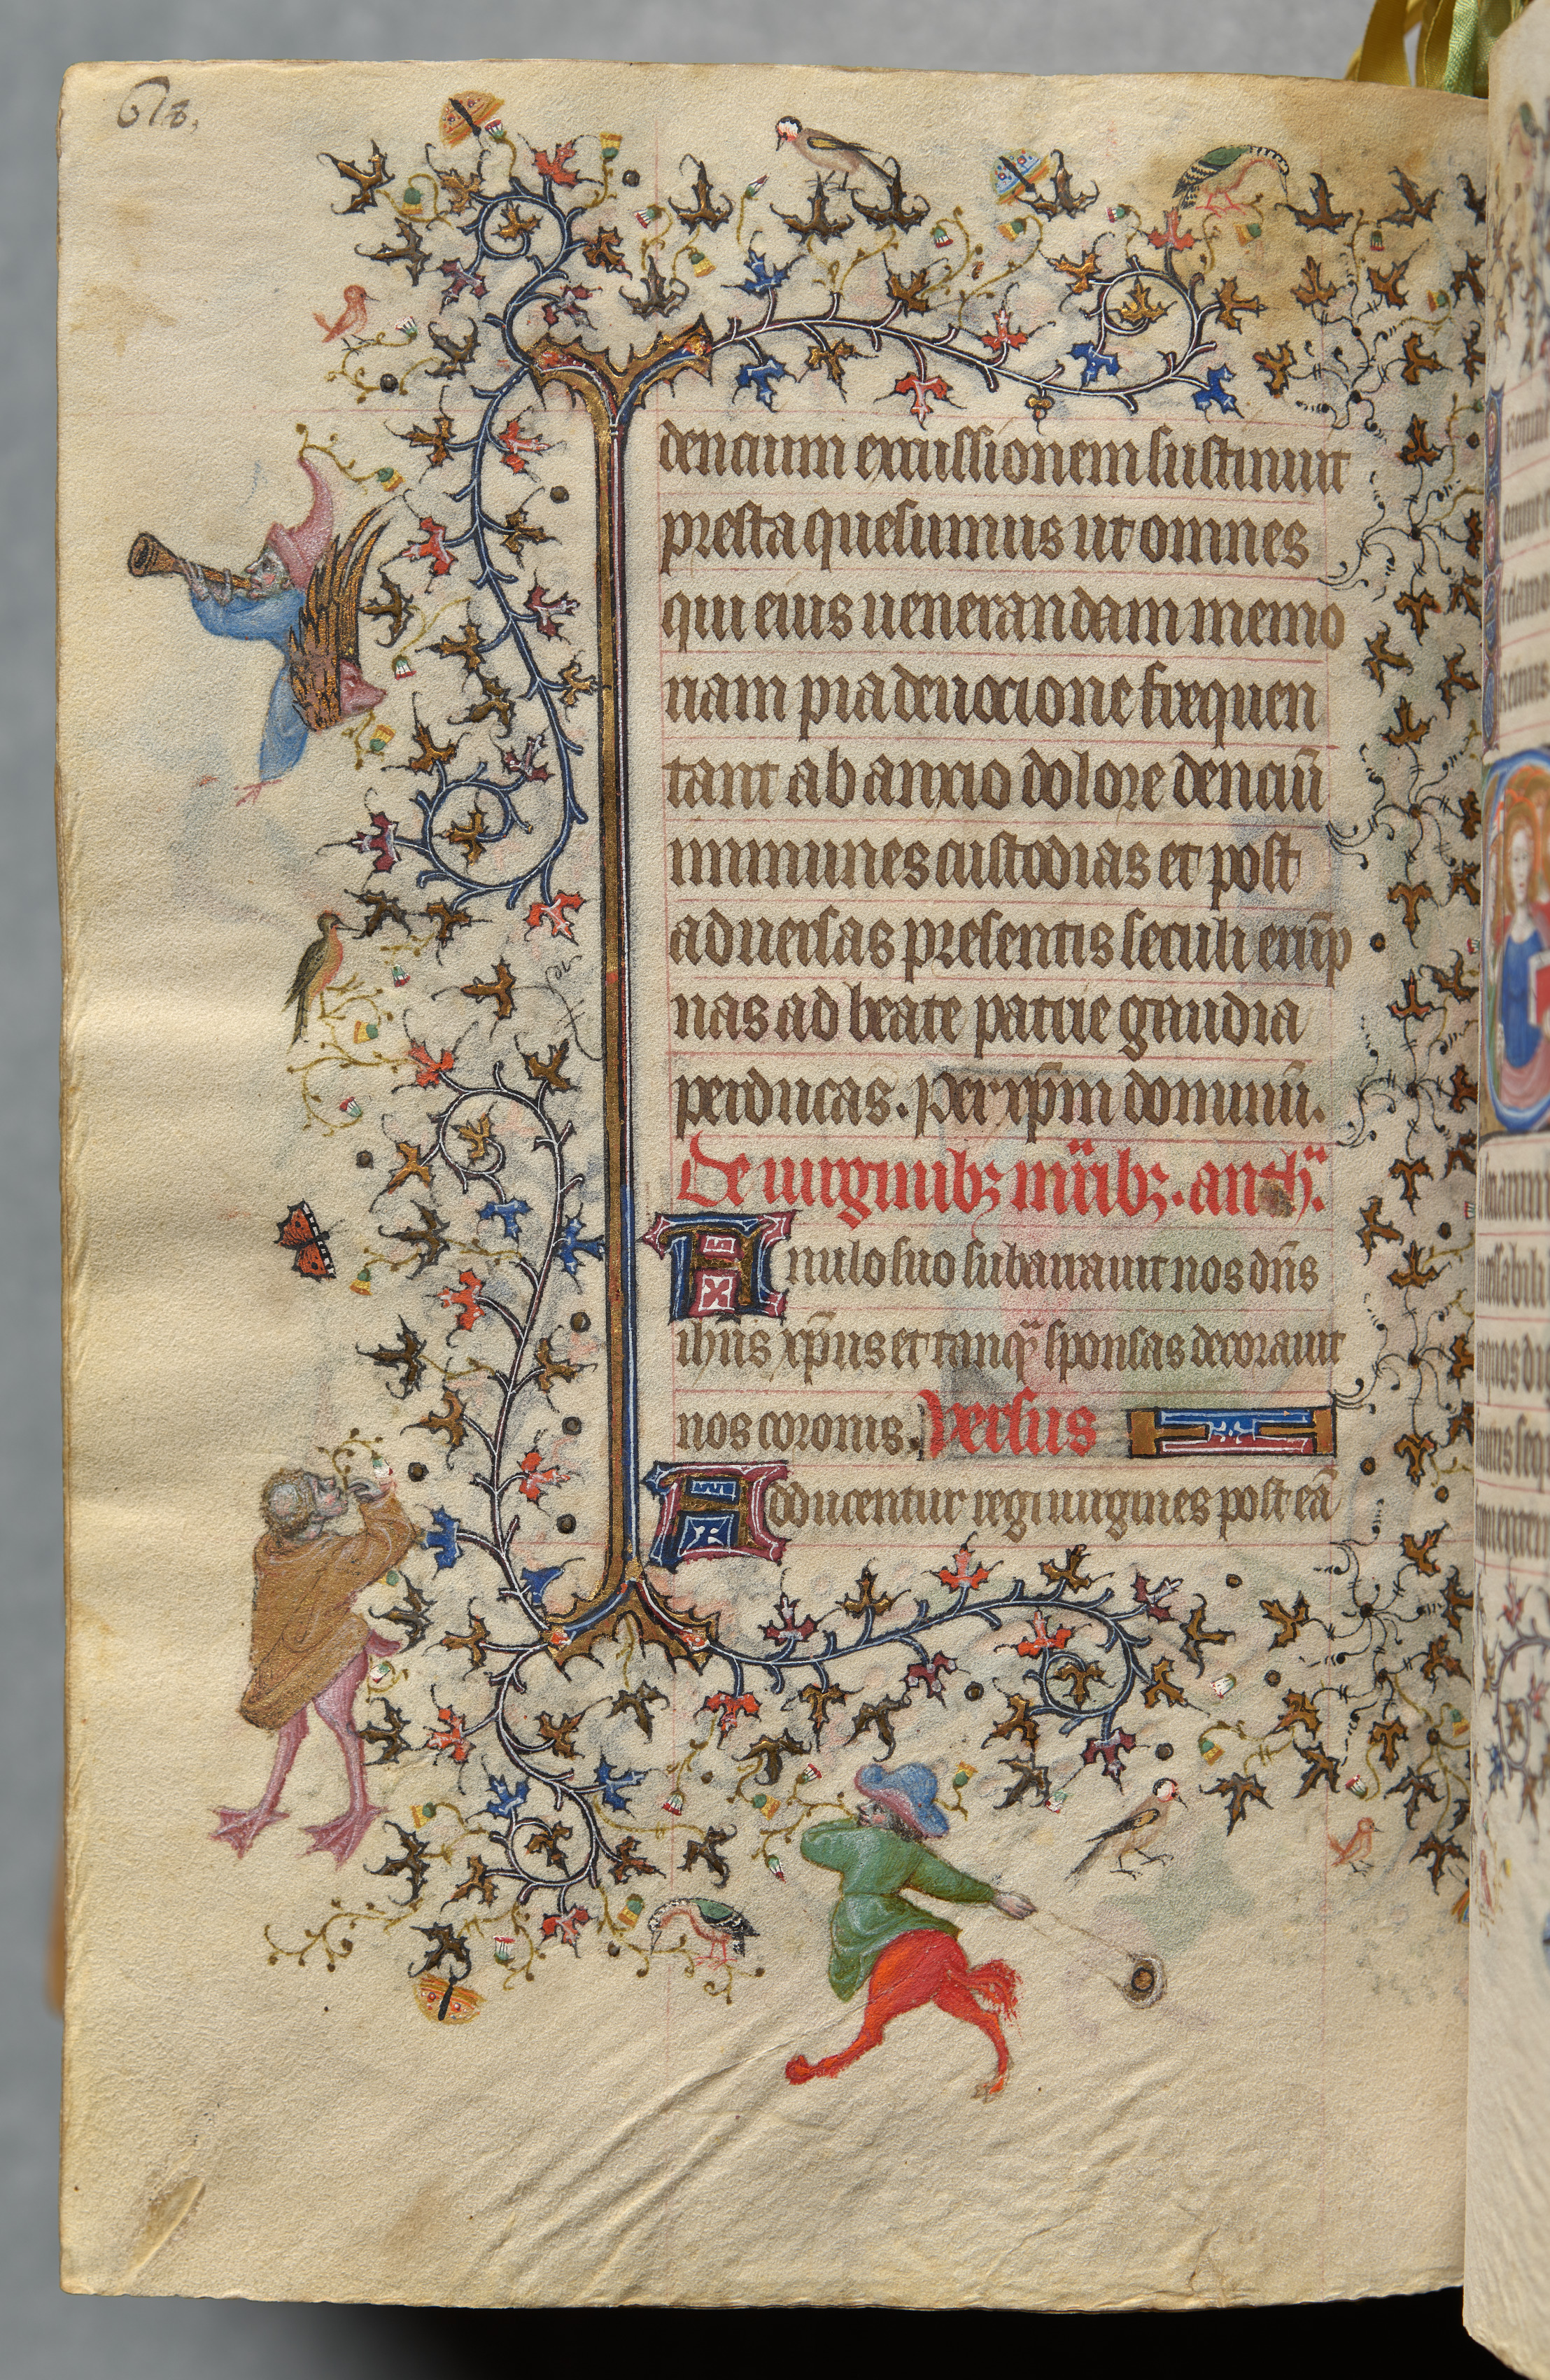 618.
dencium excussionem sustinuit
presta quesumus ut omnes
qui eius uenerandam memo
riam pia deuocione frequen
tant ab anxio dolore denciū
immunes custodias et post
aduersas presentis seculi erūp
nas ad beate patrie gaudia
perducas. Per xp̄m dominū.
De uirginibꝫ m̄ribꝫ. anthᵃ.
Anulo suo subarrauit nos dn̄s
ihūs xp̄us et tanqᵃ sponsas decorauit
nos coronis. Versus
Adducentur regi uirgines post eā